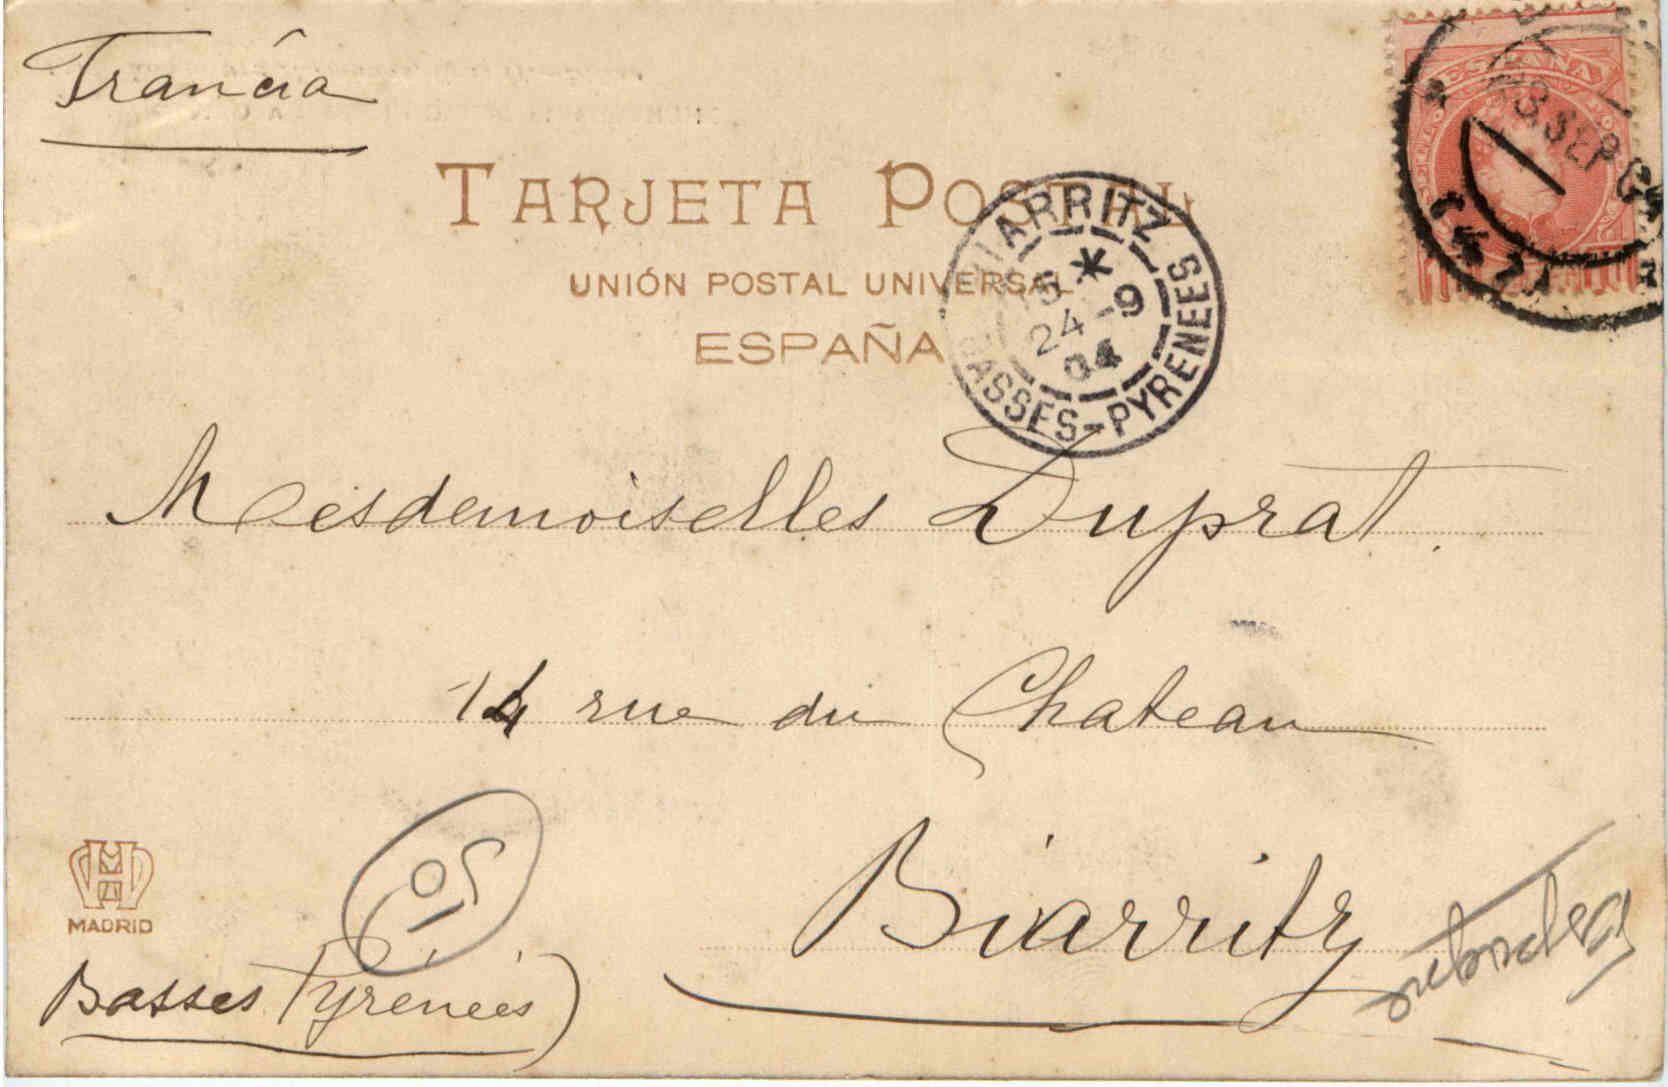 Francia
TARJETA POSTAL
UNIÓN POSTAL UNIVERSAL
ESPAÑA
ESPAÑA
23 SEP 04
BIARRITZ
BASSES-PYRENEES
24 -9
04
Mesdemoiselles Duprat.
14 rue du Chateau
Biarritz
MADRID
Basses Pyrénées)